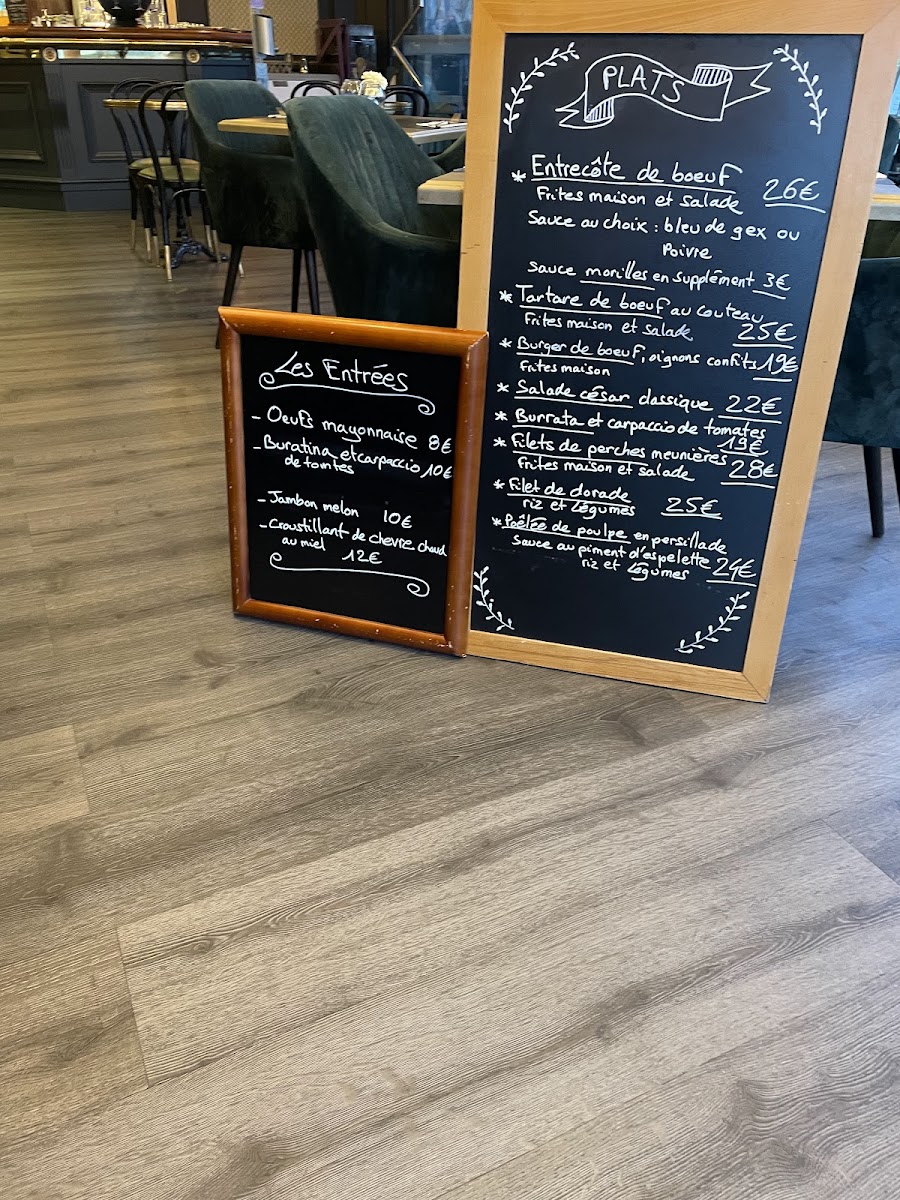 Les Entrées
- Oeufs mayonnaise 8€
- Buratina et carpaccio
de tomtes 10€
- Jambon melon 10€
- Croustillant de chèvre chaud
au miel 12€
PLATS
* Entrecôte de boeuf
Frites maison et salade 26€
Sauce au choix : bleu de gex ou
Poivre
Sauce morilles en supplément 3€
* Tartare de boeuf au couteau
Frites maison et salade 25€
* Burger de boeuf, oignons confits 19€
Frites maison
* Salade césar classique 22€
* Burrata et carpaccio de tomates
19€
* Filets de perches meunières
Frites maison et salade 28€
* Filet de dorade
riz et Légumes 25€
* Poêlée de poulpe en persillade
Sauce au piment d'espelette
riz et Légumes 24€